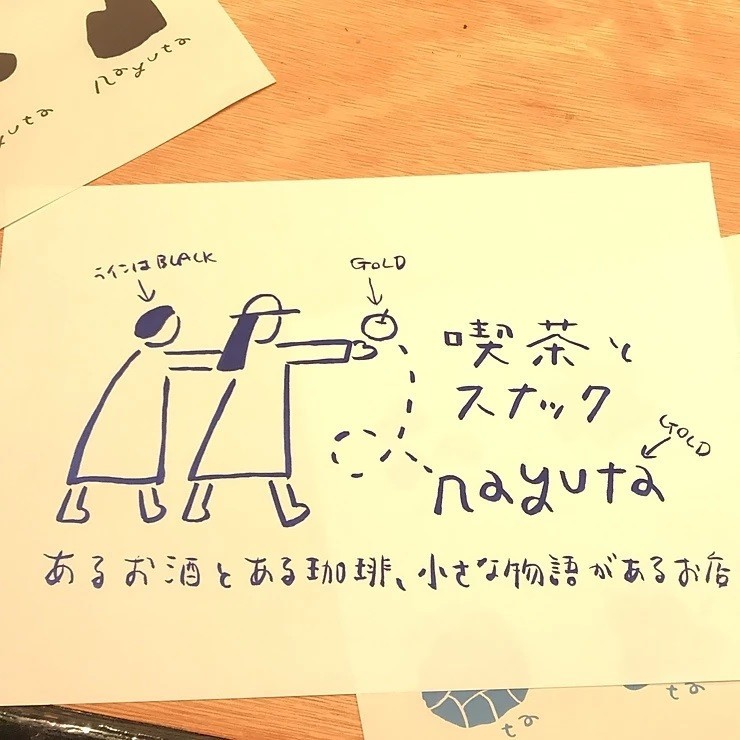 nayuta
yuta
ラインはBLACK
GOLD
喫茶と
スナック
GOLD
nayuta
あるお酒とある珈琲、小さな物語があるお店
ta
ta